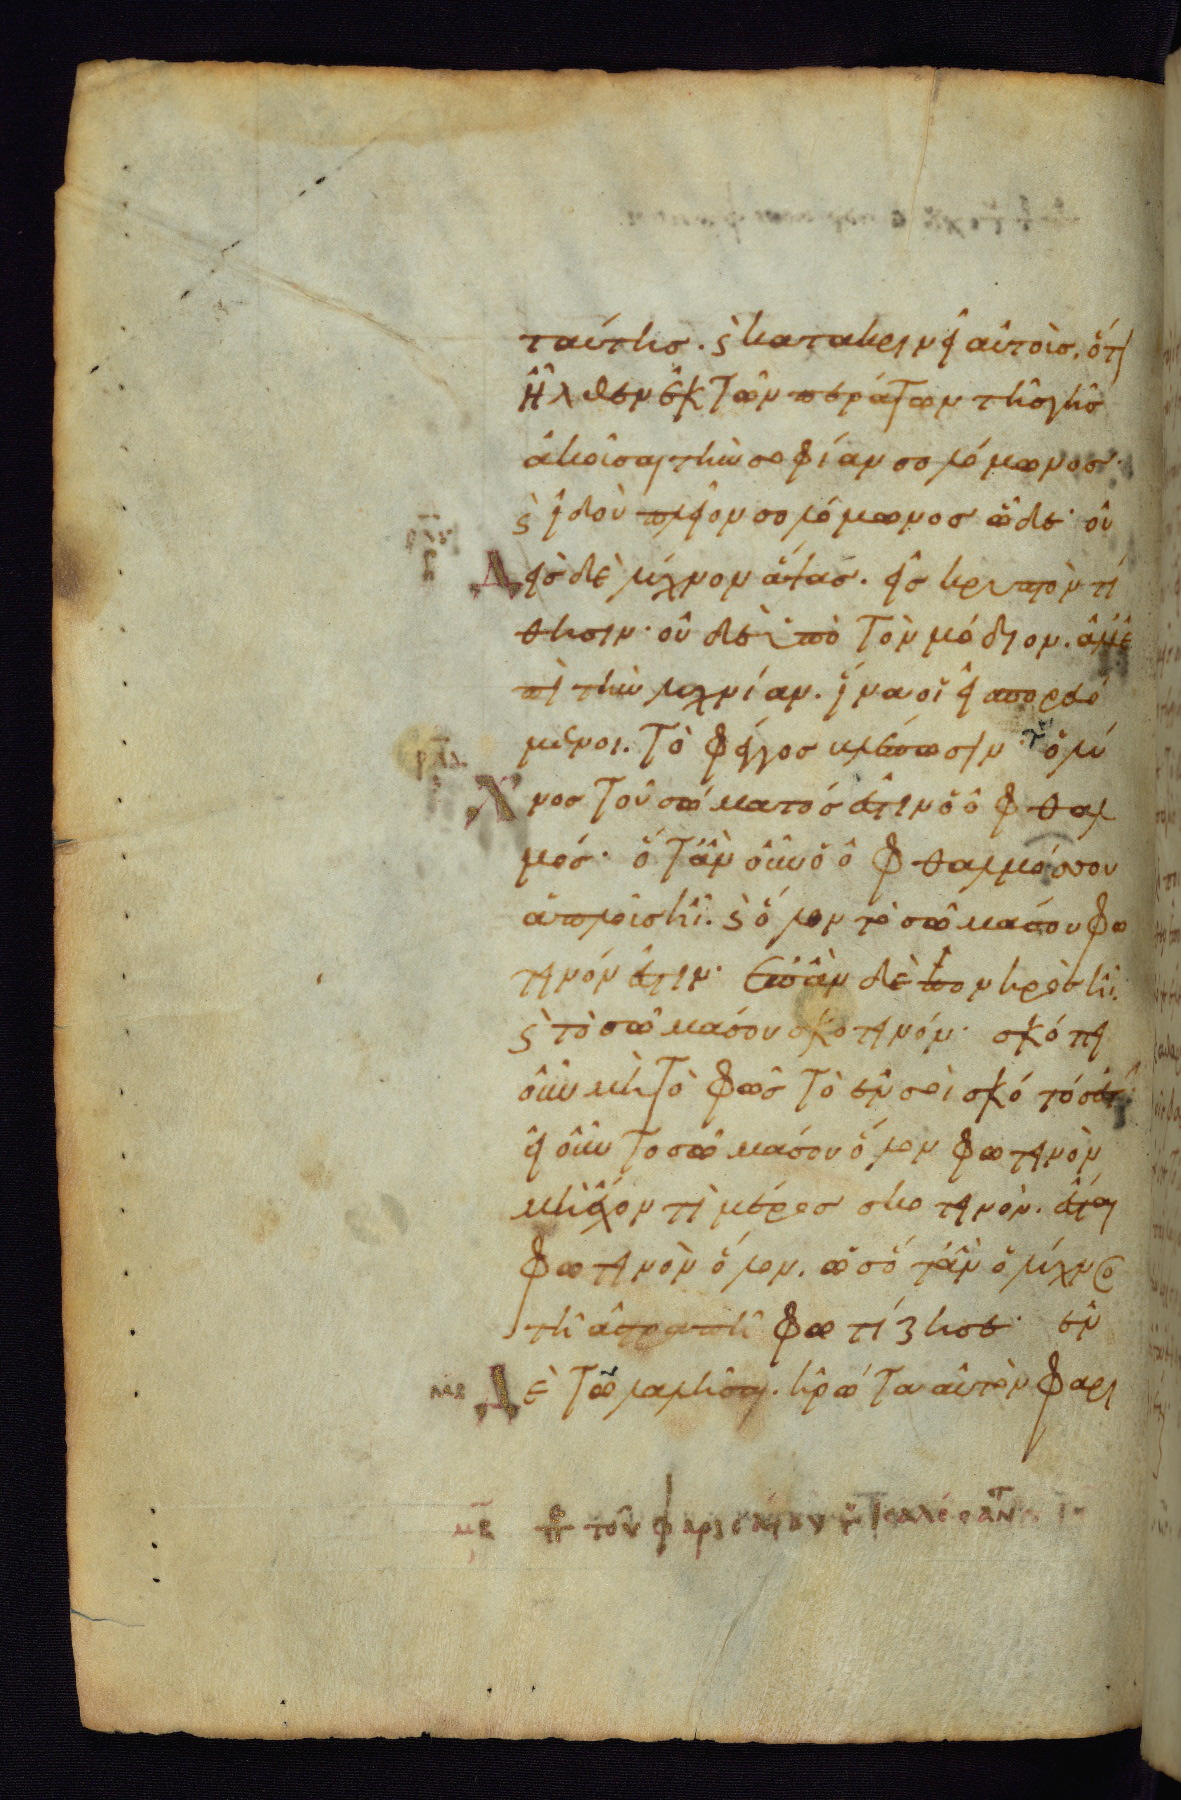 ταύτης. ϛ κατακρινεῖ αὐτοὺς. ὅτι
ἦλθεν ἐκ τῶν περάτων τῆς γῆς
ἀκοῦσαι τὴν σοφίαν σολομῶνος·
ϛ ἰδοὺ πλεῖον σολομῶνος ὧδε· οὐ
Δεὶς δὲ λύχνον ἅψας. εἰς κρυπτὸν τί
θησιν· οὐδὲ ὑπὸ τὸν μόδιον. ἀλλ' ἐ
πὶ τὴν λυχνίαν. ἵνα οἱ εἰσπορευό
μενοι. τὸ φέγγος βλέπωσιν· ὁ λύ
Χνος τοῦ σώματός ἐστιν ὁ ὀφθαλ
μός· ὅταν οὖν ὁ ὀφθαλμός σου
ἁπλοῦς ἦ. ϛ ὅλον τὸ σῶμά σου φω
τεινόν ἐστιν· ἐπὰν δὲ πονηρὸς ἦ.
ϛ τὸ σῶμά σου σκοτεινόν· σκόπει
οὖν μὴ τὸ φῶς τὸ ἐν σοὶ σκότος ἐστίν
εἰ οὖν τὸ σῶμά σου ὅλον φωτεινὸν
μὴ ἔχον τὶ μέρος σκοτεινὸν. ἔσται
φωτεινὸν ὅλον. ὡς ὅταν ὁ λύχνος
τῆ ἀστραπῆ φωτίζη σε· ἐν
Δὲ τῶ λαλῆσαι. ἠρώτα αὐτὸν φαρι
μβ π τοῦ φαρισαίου τοῦ καλέσαντ